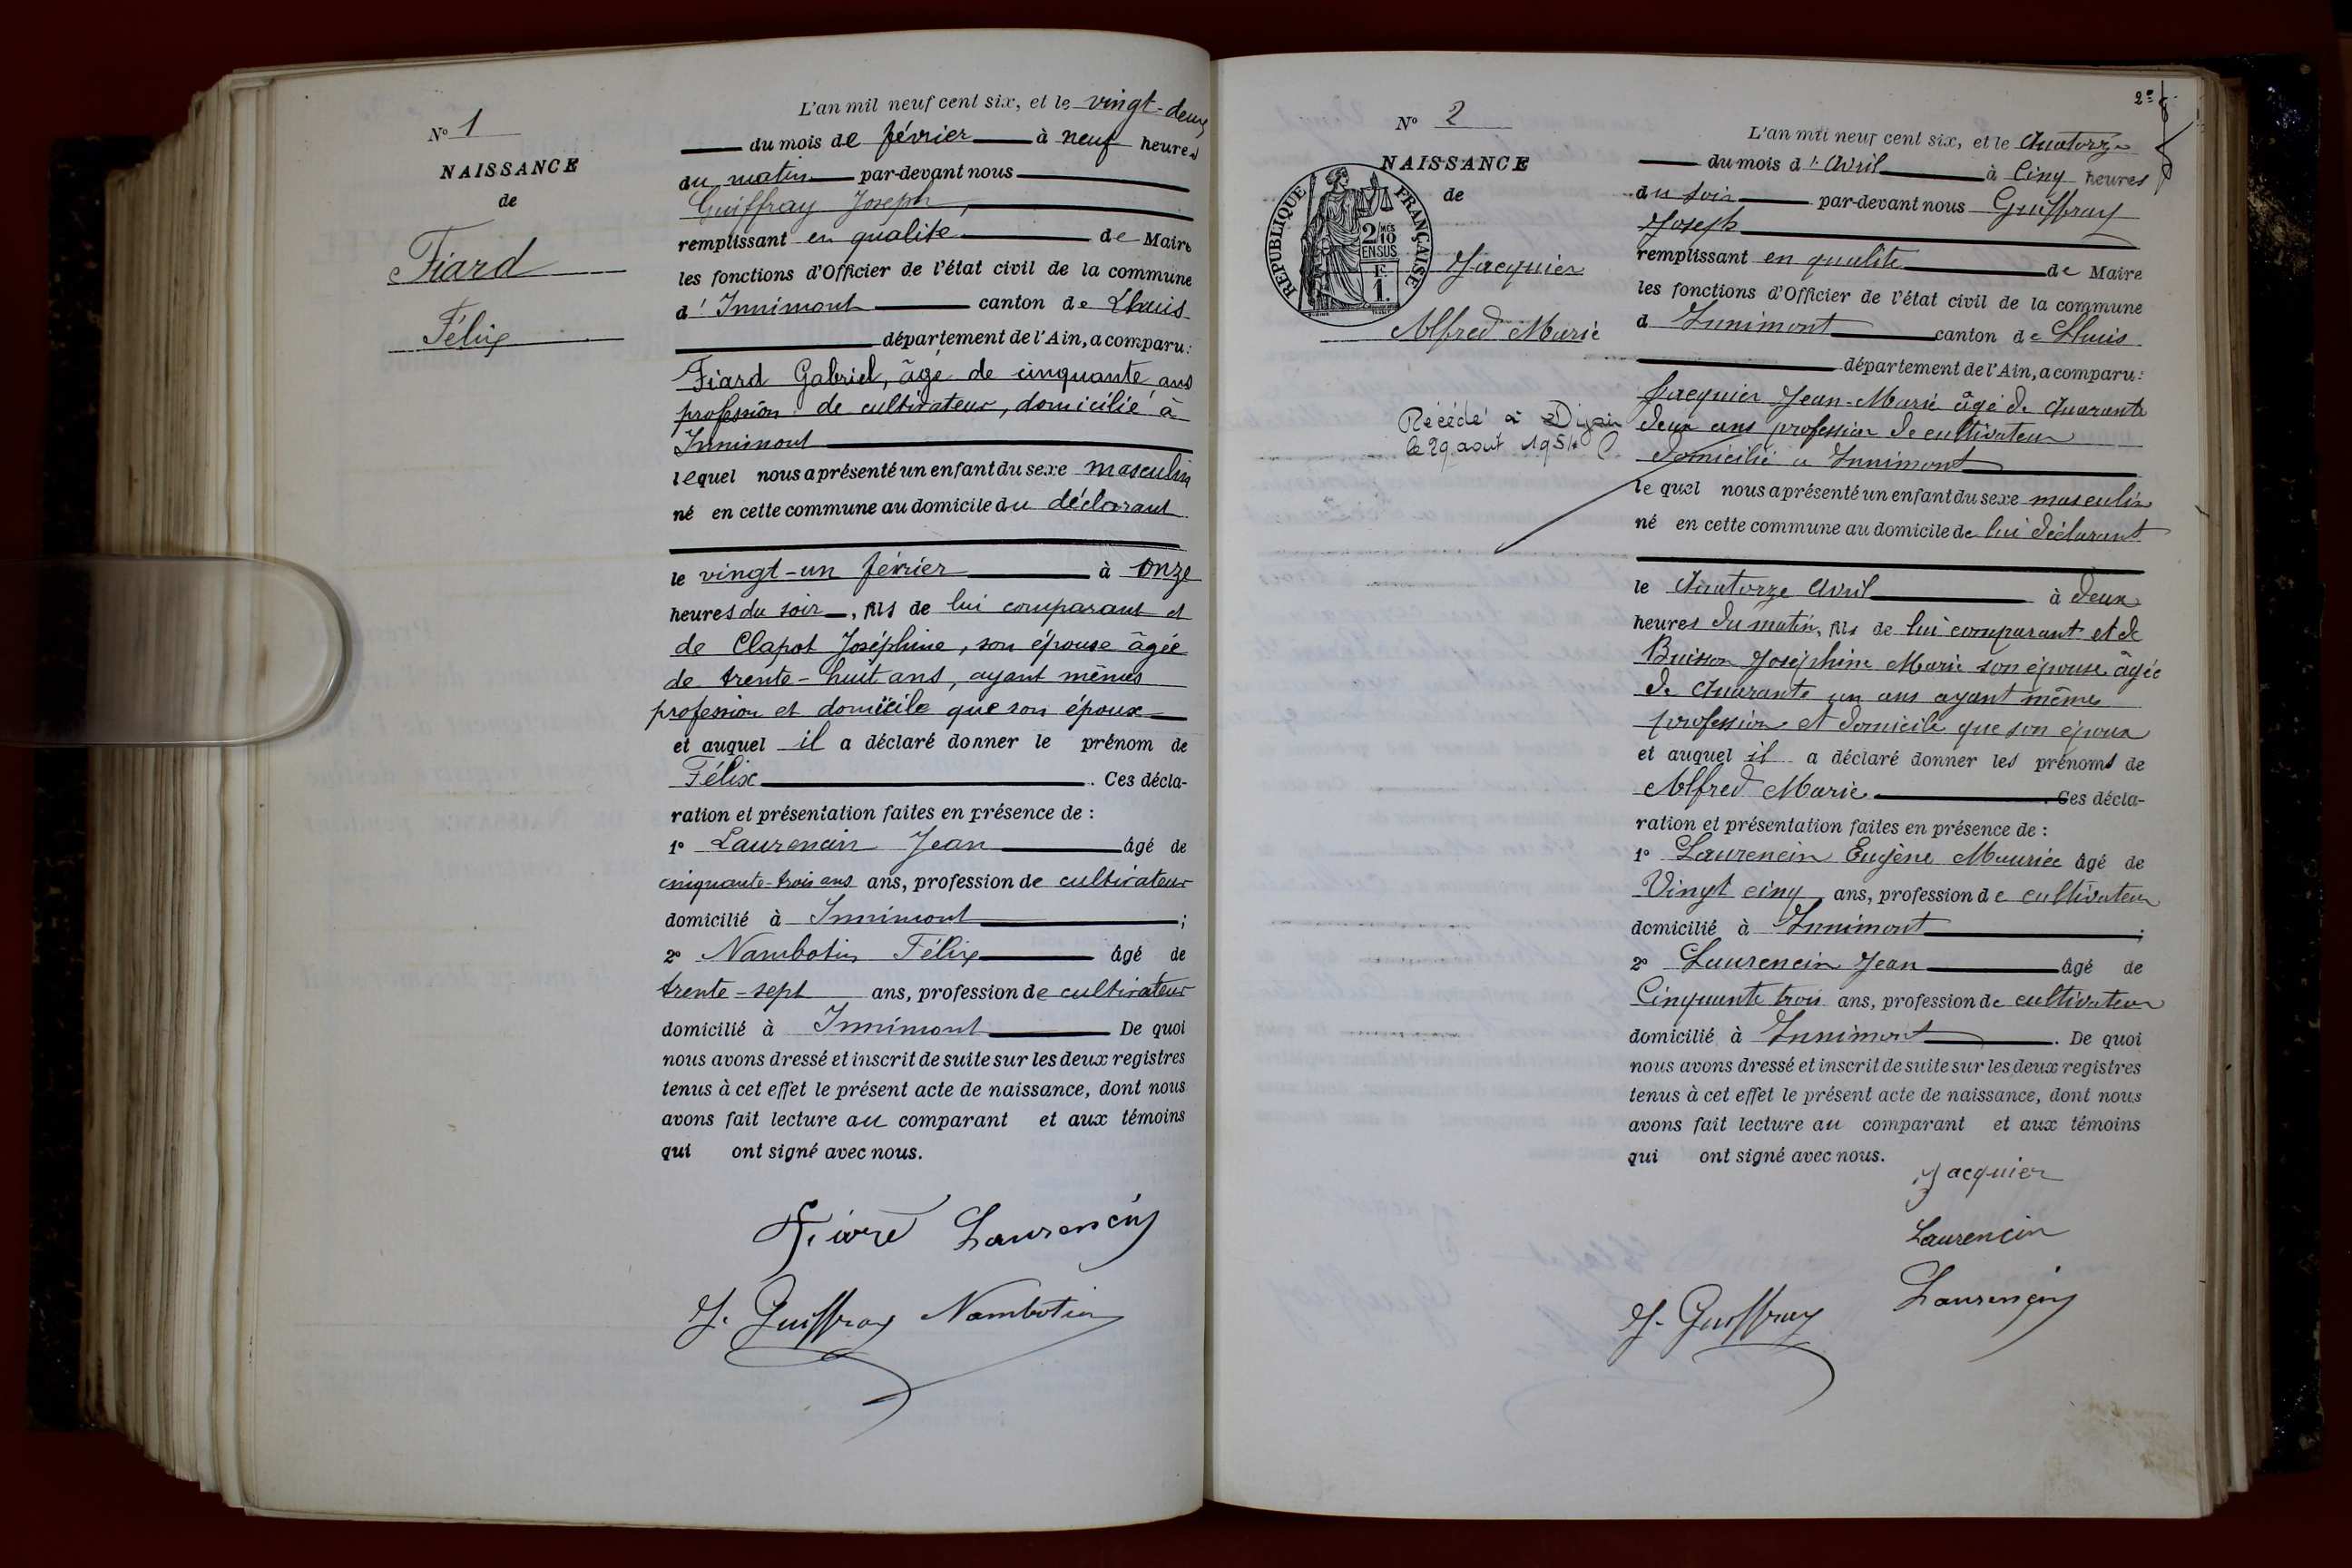 N° 1
NAISSANCE
de
Fiard
Félix
L'an mil neuf cent six, et le vingt-deux
du mois de février à neuf heures
du matin par-devant nous
Guiffray Joseph,
remplissant en qualité de Maire
les fonctions d'Officier de l'état civil de la commune
d'Innimont canton de Lhuis
département de l'Ain, a comparu:
Fiard Gabriel, âgé de cinquante ans
profession de cultivateur, domicilié à
Innimont
lequel nous a présenté un enfant du sexe masculin
né en cette commune au domicile du déclarant
le vingt-un février à onze
heures du soir, fils de lui comparant et
de Clapot Joséphine, son épouse âgée
de trente-huit ans, ayant mêmes
profession et domicile que son époux
et auquel il a déclaré donner le prénom de
Félix. Ces décla-
ration et présentation faites en présence de :
1° Laurencin Jean âgé de
cinquante-trois ans ans, profession de cultivateur
domicilié à Innimont ;
2° Nambotin Félix âgé de
trente-sept ans, profession de cultivateur
domicilié à Innimont De quoi
nous avons dressé et inscrit de suite sur les deux registres
tenus à cet effet le présent acte de naissance, dont nous
avons fait lecture au comparant et aux témoins
qui ont signé avec nous.
Laurencin
J. Guiffray Nambotin
2e
N° 2
NAISSANCE
de
RÉPUBLIQUE FRANÇAISE
2/10
EN SUS
F.
1.
Jacquier
Alfred Marie
Décédé à Dijon
le 29 août 1954
L'an mil neuf cent six, et le Quatorze
du mois d'Avril à Cinq heures
du soir par-devant nous Guiffray
Joseph
remplissant en qualité de Maire
les fonctions d'Officier de l'état civil de la commune
d Innimont canton de Lhuis
département de l'Ain, a comparu:
Jacquier Jean-Marie âgé de Quarante
deux ans profession de cultivateur
domicilié a Innimont
le quel nous a présenté un enfant du sexe masculin
né en cette commune au domicile de lui déclarant
le Quatorze Avril à deux
heures du matin, fils de lui comparant et de
Buisson Joséphine Marie son épouse âgée
de Quarante un ans ayant même
profession et domicile que son époux
et auquel il a déclaré donner les prénoms de
Alfred Marie. Ces décla-
ration et présentation faites en présence de :
1° Laurencin Eugène Maurice âgé de
Vingt cinq ans, profession de cultivateur
domicilié à Innimont ;
2° Laurencin Jean âgé de
Cinquante trois ans, profession de cultivateur
domicilié à Innimont. De quoi
nous avons dressé et inscrit de suite sur les deux registres
tenus à cet effet le présent acte de naissance, dont nous
avons fait lecture au comparant et aux témoins
qui ont signé avec nous.
Jacquier
Laurencin
J. Guiffray Laurencin